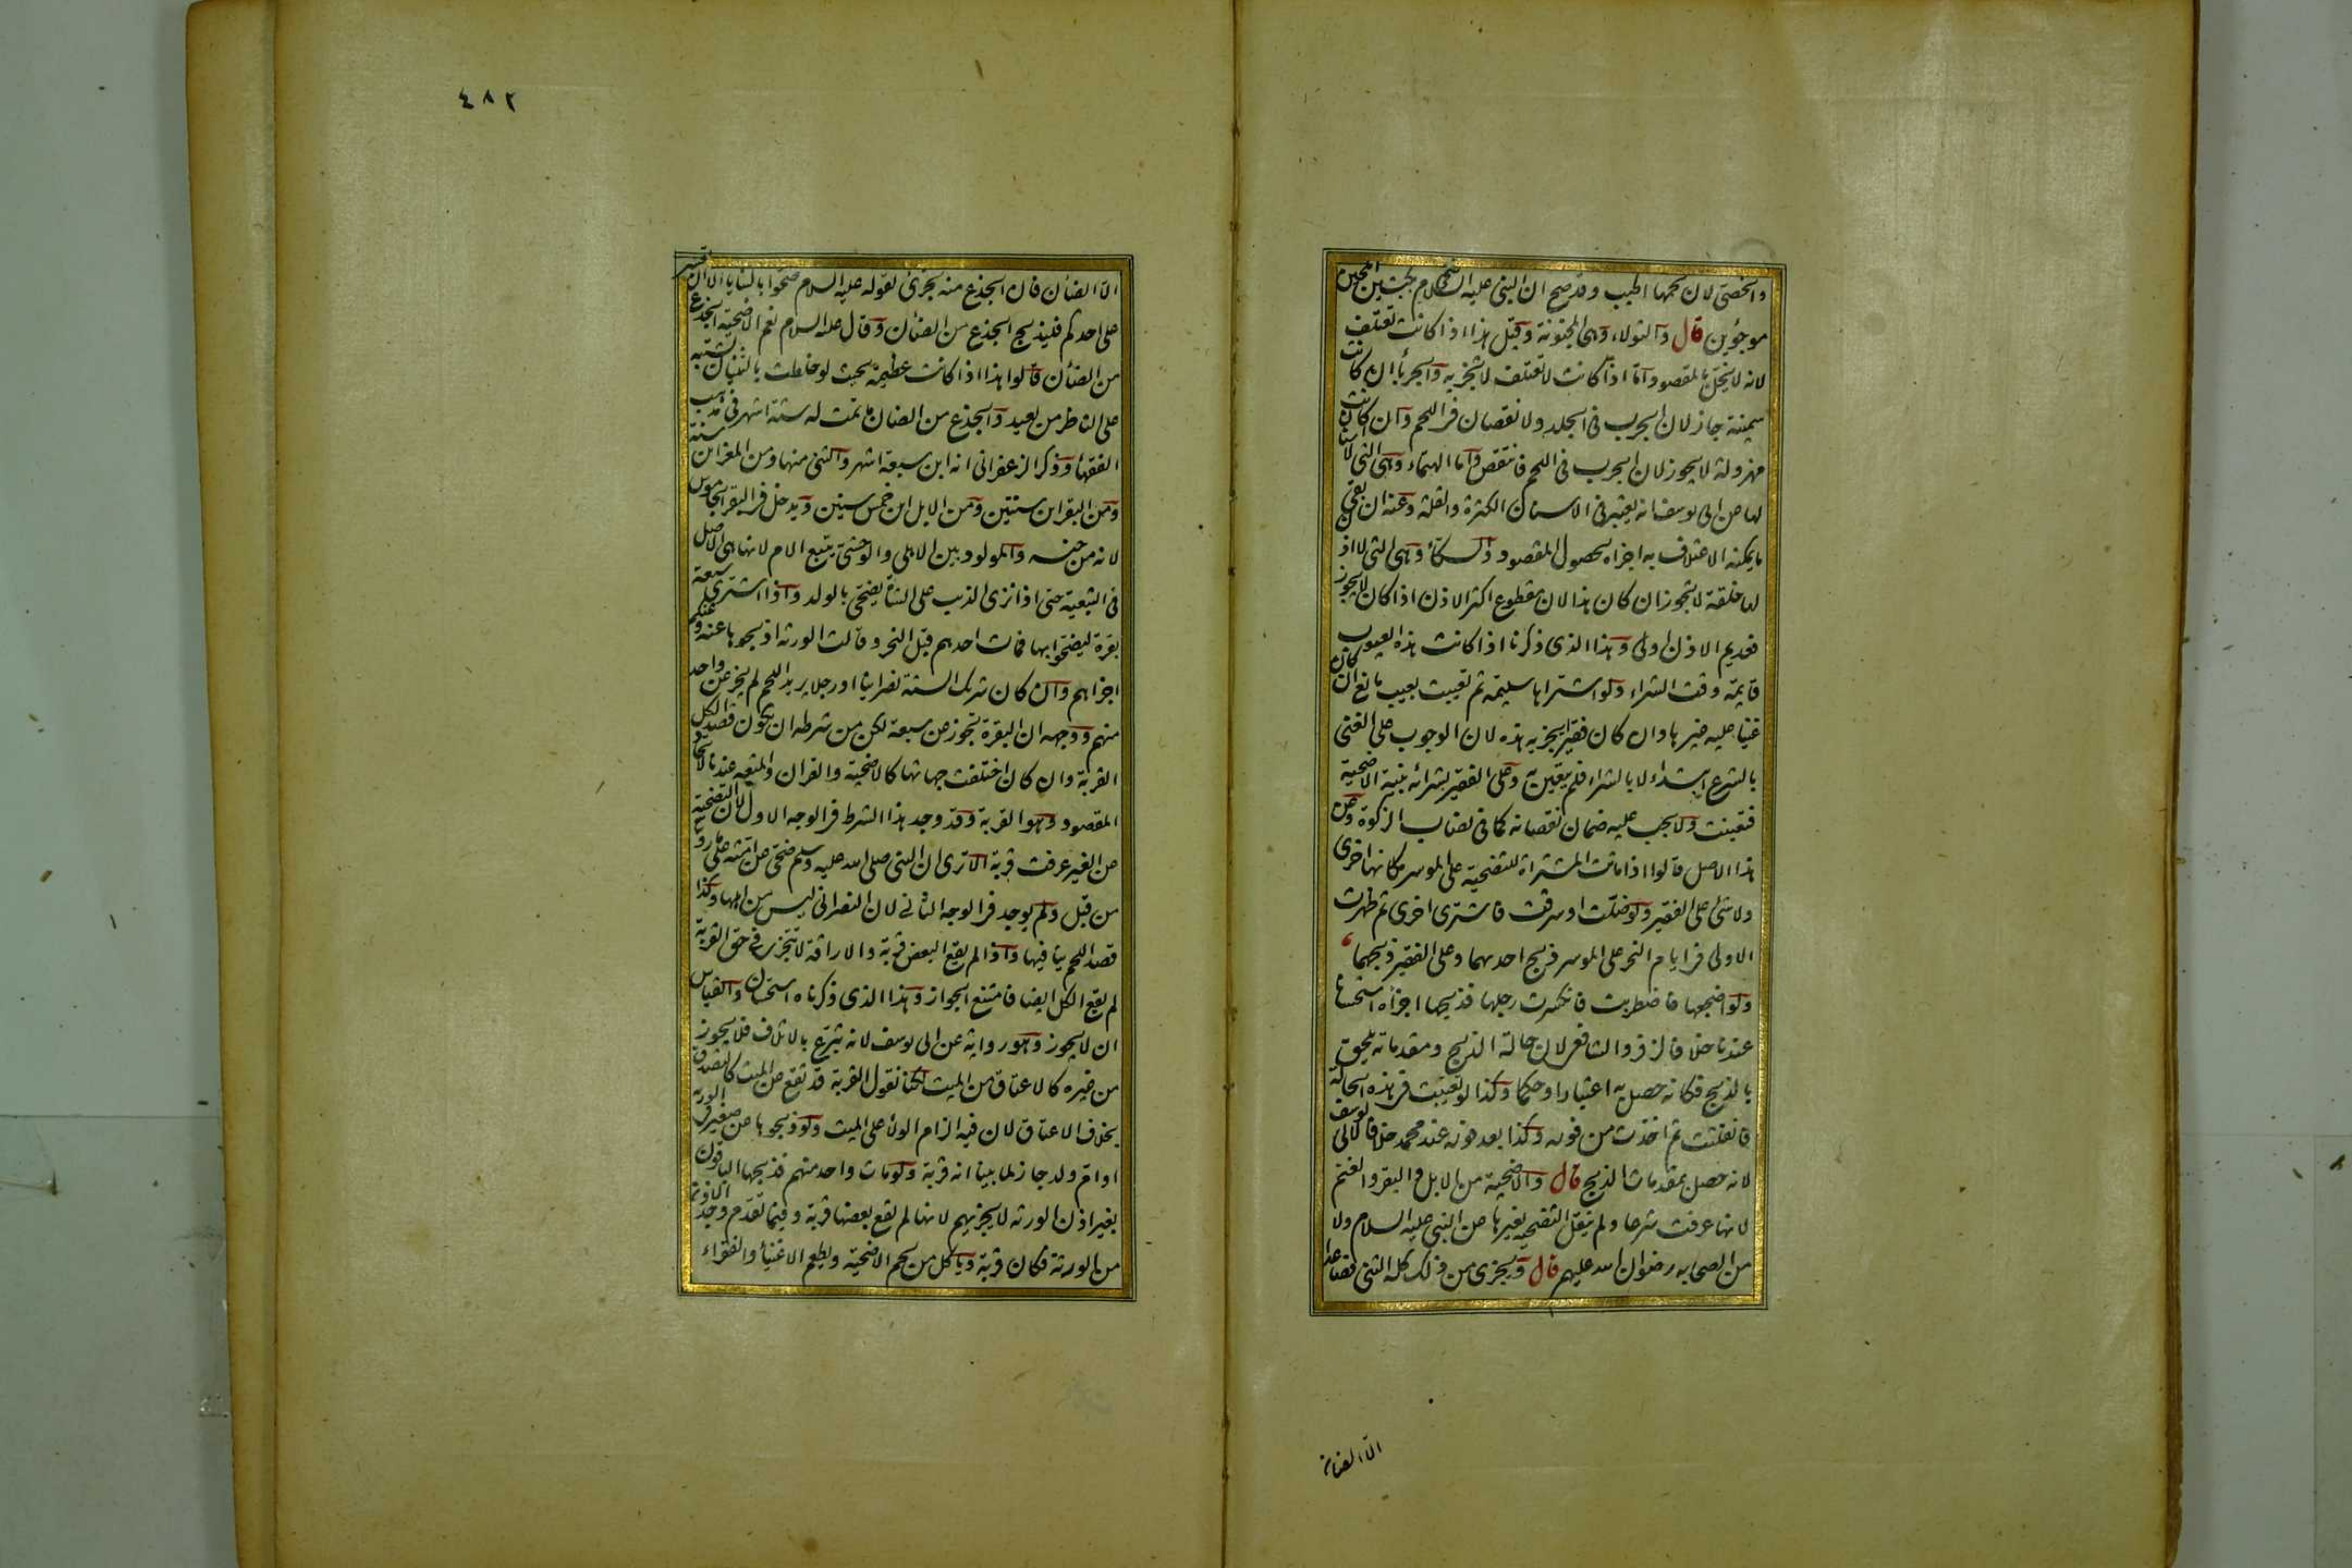 والخصي لان لحمها اطيب وقد صح ان النبي عليه السلام ضحى بكبشين املحين
موجوئين قال والثولاء وهي المجنونة وقيل هذا اذا كانت تعتلف
لانه لا يخل بالمقصود واما اذا كانت لا تعتلف لا تجزيه والجرباء ان كانت
سمينة جاز لان الجرب في الجلد ولا نقصان في اللحم وان كانت
مهزولة لا يجوز لان الجرب في اللحم فانتقص واما الهتماء وهي التي لا اسنان
لها عن ابي يوسف انه يعتبر في الاسنان الكثرة والقلة وعنه ان بقي
ما يمكنه الاعتلاف به اجزاه لحصول المقصود والسكاء وهي التي لا اذن
لها خلقة لا تجوز ان كان هذا لان مقطوع اكثر الاذن اذا كان لا يجوز
فعديم الاذن اولى وهذا الذي ذكرنا اذا كانت هذه العيوب
قايمة وقت الشراء ولو اشتراها سليمة ثم تعيبت بعيب مانع ان كان
غنيا عليه غيرها وان كان فقيرا يجزيه هذه لان الوجوب على الغني
بالشرع ابتداء لا بالشراء فلم يتعين به وعلى الفقير بشرائه بنية الاضحية
فتعينت ولا يجب عليه ضمان نقصانه كما في نصاب الزكوة وعن
هذا الاصل قالوا اذا ماتت المشتراة للتضحية على الموسر مكانها اخرى
ولا شئ على الفقير ولو ضلت او سرقت فاشترى اخرى ثم ظهرت
الاولى في ايام النحر على الموسر ذبح احدهما وعلى الفقير ذبحهما
ولو اضجعها فاضطربت فانكسرت رجلها فذبحها اجزأه استحسانا
عندنا خلافا لزفر والشافعي لان حالة الذبح ومقدماته ملحق
بالذبح فكانه حصل به اعتبارا وحكما وكذا لو تعيبت في هذه الحالة
فانفلتت ثم اخذت من فوره وكذا بعد فوره عند محمد خلافا لابي يوسف
لانه حصل بمقدمات الذبح قال والاضحية من الابل والبقر والغنم
لانها عرفت شرعا ولم ينقل التضحية بغيرها عن النبي عليه السلام ولا
من الصحابه رضوان الله عليهم قال ويجزى من ذلك كله الثني فصاعدا
الا الضأن
٤٨٢
الا الضأن فان الجذع منه يجزئ لقوله عليه السلام ضحوا بالثنايا الا ان تعسر
على احدكم فليذبح الجذع من الضأن وقال عليه السلام نعم الاضحية الجذع
من الضأن قالوا هذا اذا كانت عظيمة بحيث لو خلطت بالثنيان تشتبه
على الناظر من بعيد والجذع من الضان ما تمت له ستة اشهر في مذهب
الفقهاء وذكر الزعفراني انه ابن سبعة اشهر والثني منها ومن المعز ابن سنة
ومن البقر ابن سنتين ومن الابل ابن خمس سنين ويدخل في البقر الجاموس
لانه من جنسه والمولود بين الاهلي والوحشي يتبع الام لانها هي الاصل
في التبعية حتى اذا نزى الذيب على الشاة يضحى بالولد واذا اشترى سبعة
بقرة ليضحوا بها فمات احدهم قبل النحر وقالت الورثة اذبحوها عنه وعنكم
اجزاهم وان كان شريك الستة نصرانيا او رجلا يريد اللحم لم يجز عن واحد
منهم ووجهه ان البقرة تجوز عن سبعة لكن من شرطه ان يكون قصد الكل
القربة وان كان اختلفت جهاتها كالاضحية والقران والمتعه عندنا لاتحاد
المقصود وهو القربة وقد وجد هذا الشرط في الوجه الاول لان التضحية
عن الغير عرفت قربة الا ترى ان النبي صلى الله عليه وسلم ضحى عن امته على ما روينا
من قبل ولم يوجد في الوجه الثاني لان النصراني ليس من اهلها وكذا
قصد اللحم ينافيها واذا لم يقع البعض قربة والاراقة لا تتجزى في حق القربة
لم يقع الكل ايضا فامتنع الجواز وهذا الذي ذكرناه استحسان والقياس
ان لا يجوز وهو رواية عن ابي يوسف لانه تبرع بالاتلاف فلا يجوز
من غيره كالاعتاق من الميت لكنا نقول القربة قد تقع عن الميت كالتصدق
بخلاف الاعتاق لان فيه الزام الولاء على الميت ولو ذبحوها عن صغير في الورثة
او ام ولد جاز لما بينا انه قربة ولو مات واحد منهم فذبحها الباقون
بغير اذن الورثة لا يجزيهم لانها لم تقع بعضها قربة وفيما تقدم وجد الاذن
من الورثة فكان قربة وياكل من لحم الاضحية ويطعم الاغنياء والفقراء